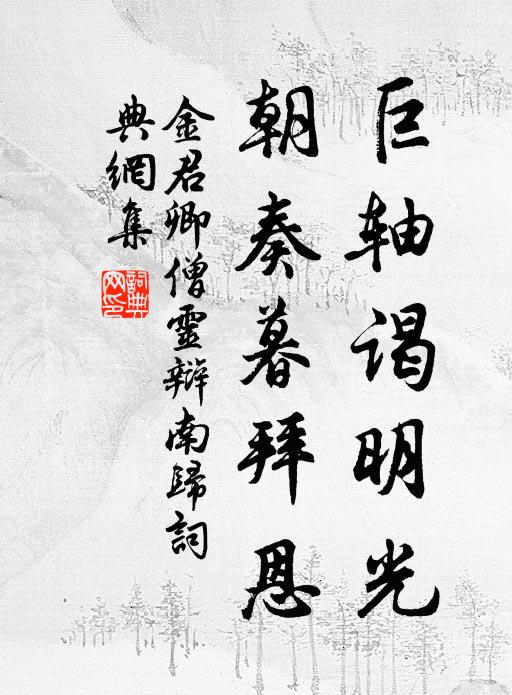 巨轴谒明光
朝奏暮拜恩
金君卿僧靈辯南歸詞
典網集
詞典
网印